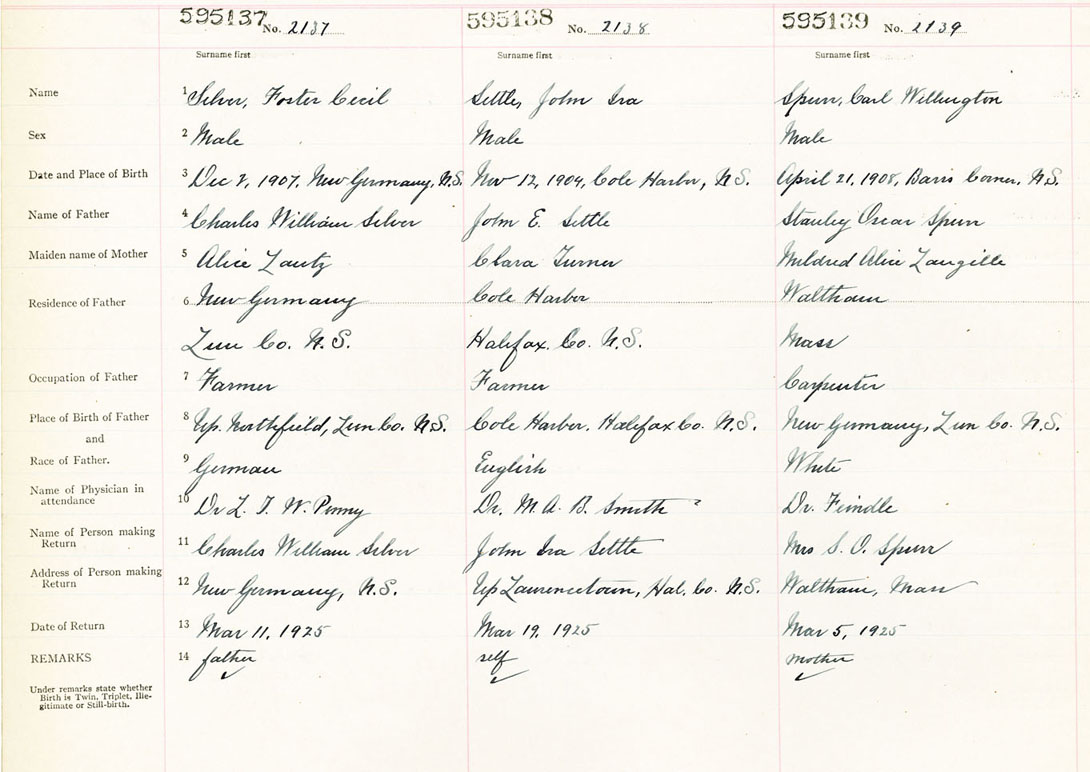 595137 No. 2137 595138 No. 2138 595139 No. 2139
Surname first Surname first Surname first
Name 1 Silver, Foster Cecil Settle, John Ira Spurr, Carl Willington
Sex 2 Male Male Male
Date and Place of Birth 3 Dec 2, 1907, New Germany, N.S. Nov 12, 1904, Cole Harbor, N.S. April 21, 1908, Barss Corner, N.S.
Name of Father 4 Charles William Silver John E. Settle Stanley Oscar Spurr
Maiden name of Mother 5 Alice Lantz Clara Turner Mildred Alice Langille
Residence of Father 6 New Germany Cole Harbor Waltham
Lun Co. N.S. Halifax. Co. N.S. Mass
Occupation of Father 7 Farmer Farmer Carpenter
Place of Birth of Father 8 Up. Northfield, Lun Co. N.S. Cole Harbor. Halifax Co. N.S. New Germany, Lun Co. N.S.
and
Race of Father. 9 German English White
Name of Physician in
attendance 10 Dr L. T. W. Penny Dr. M. A. B. Smith Dr.
Name of Person making
Return 11 Charles William Silver John Ira Settle Mrs S. O. Spurr
Address of Person making
Return 12 New Germany, N.S. Up Lawrencetown, Hal. Co. N.S. Waltham, Mass
Date of Return 13 Mar 11, 1925 Mar 19, 1925 Mar 5, 1925
REMARKS 14 father self mother
Under remarks state whether
Birth is Twin, Triplet, Ille-
gitimate or Still-birth.